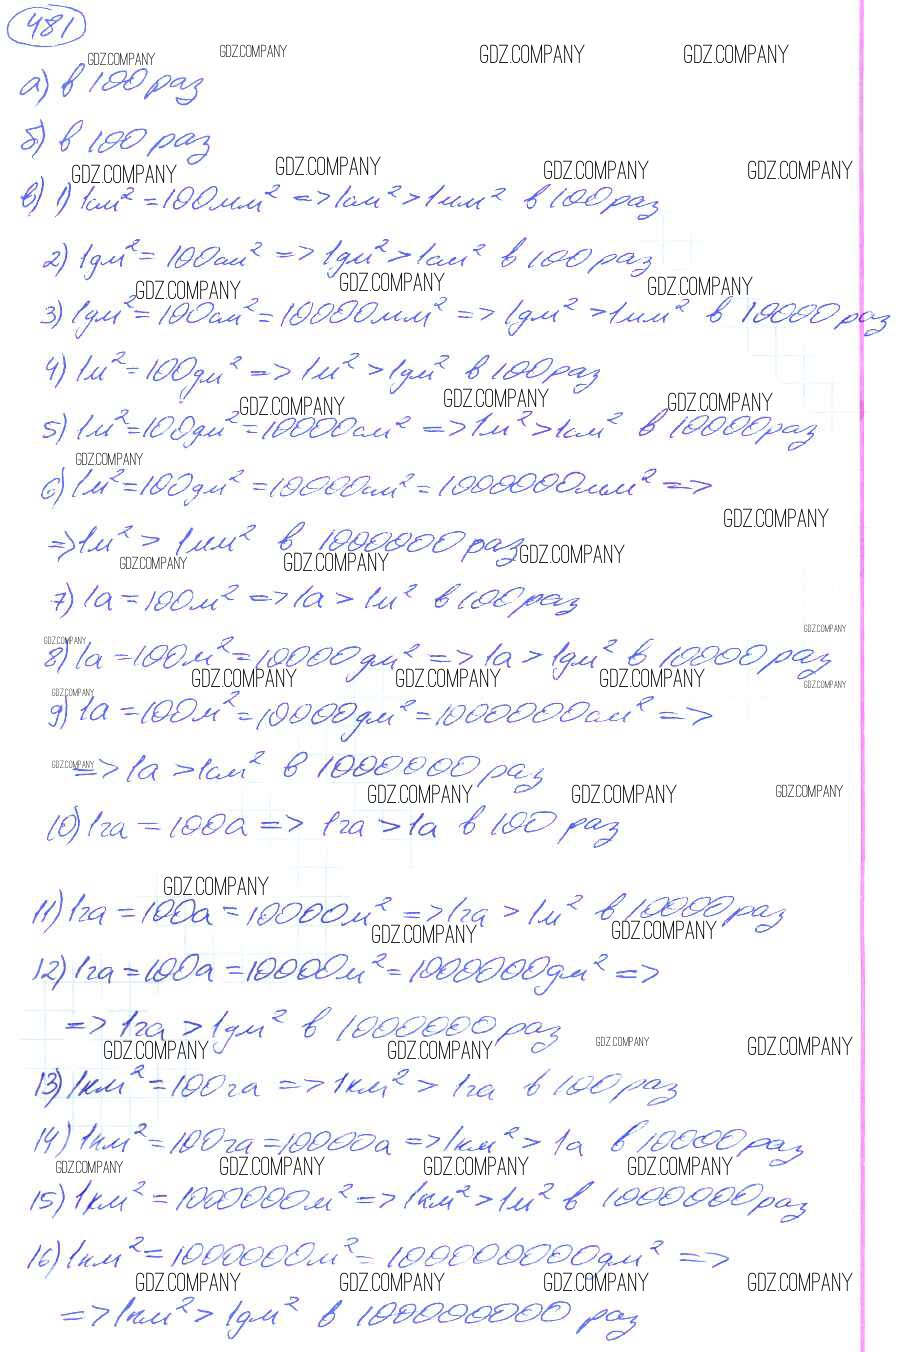 481
GDZ.COMPANY GDZ.COMPANY GDZ.COMPANY GDZ.COMPANY
а) в 100 раз
б) в 100 раз
GDZ.COMPANY GDZ.COMPANY GDZ.COMPANY GDZ.COMPANY
в) 1) 1см² = 100мм² => 1см² > 1мм² в 100 раз
2) 1дм² = 100см² => 1дм² > 1см² в 100 раз
GDZ.COMPANY GDZ.COMPANY GDZ.COMPANY
3) 1дм² = 100см² = 10000мм² => 1дм² > 1мм² в 10000 раз
4) 1м² = 100дм² => 1м² > 1дм² в 100 раз
GDZ.COMPANY GDZ.COMPANY GDZ.COMPANY
5) 1м² = 100дм² = 10000см² => 1м² > 1см² в 10000 раз
GDZ.COMPANY
6) 1м² = 100дм² = 10000см² = 1000000мм² =>
GDZ.COMPANY
=> 1м² > 1мм² в 1000000 раз
GDZ.COMPANY GDZ.COMPANY GDZ.COMPANY
7) 1а = 100м² => 1а > 1м² в 100 раз
GDZ.COMPANY GDZ.COMPANY
8) 1а = 100м² = 10000дм² => 1а > 1дм² в 10000 раз
GDZ.COMPANY GDZ.COMPANY GDZ.COMPANY GDZ.COMPANY GDZ.COMPANY
9) 1а = 100м² = 10000дм² = 1000000см² =>
GDZ.COMPANY
=> 1а > 1см² в 1000000 раз
GDZ.COMPANY GDZ.COMPANY GDZ.COMPANY
10) 1га = 100а => 1га > 1а в 100 раз
GDZ.COMPANY
11) 1га = 100а = 10000м² => 1га > 1м² в 10000 раз
GDZ.COMPANY GDZ.COMPANY
12) 1га = 100а = 10000м² = 1000000дм² =>
=> 1га > 1дм² в 1000000 раз
GDZ.COMPANY GDZ.COMPANY GDZ.COMPANY GDZ.COMPANY
13) 1км² = 100га => 1км² > 1га в 100 раз
14) 1км² = 100га = 10000а => 1км² > 1а в 10000 раз
GDZ.COMPANY GDZ.COMPANY GDZ.COMPANY GDZ.COMPANY
15) 1км² = 1000000м² => 1км² > 1м² в 1000000 раз
16) 1км² = 1000000м² = 100000000дм² =>
GDZ.COMPANY GDZ.COMPANY GDZ.COMPANY GDZ.COMPANY
=> 1км² > 1дм² в 100000000 раз